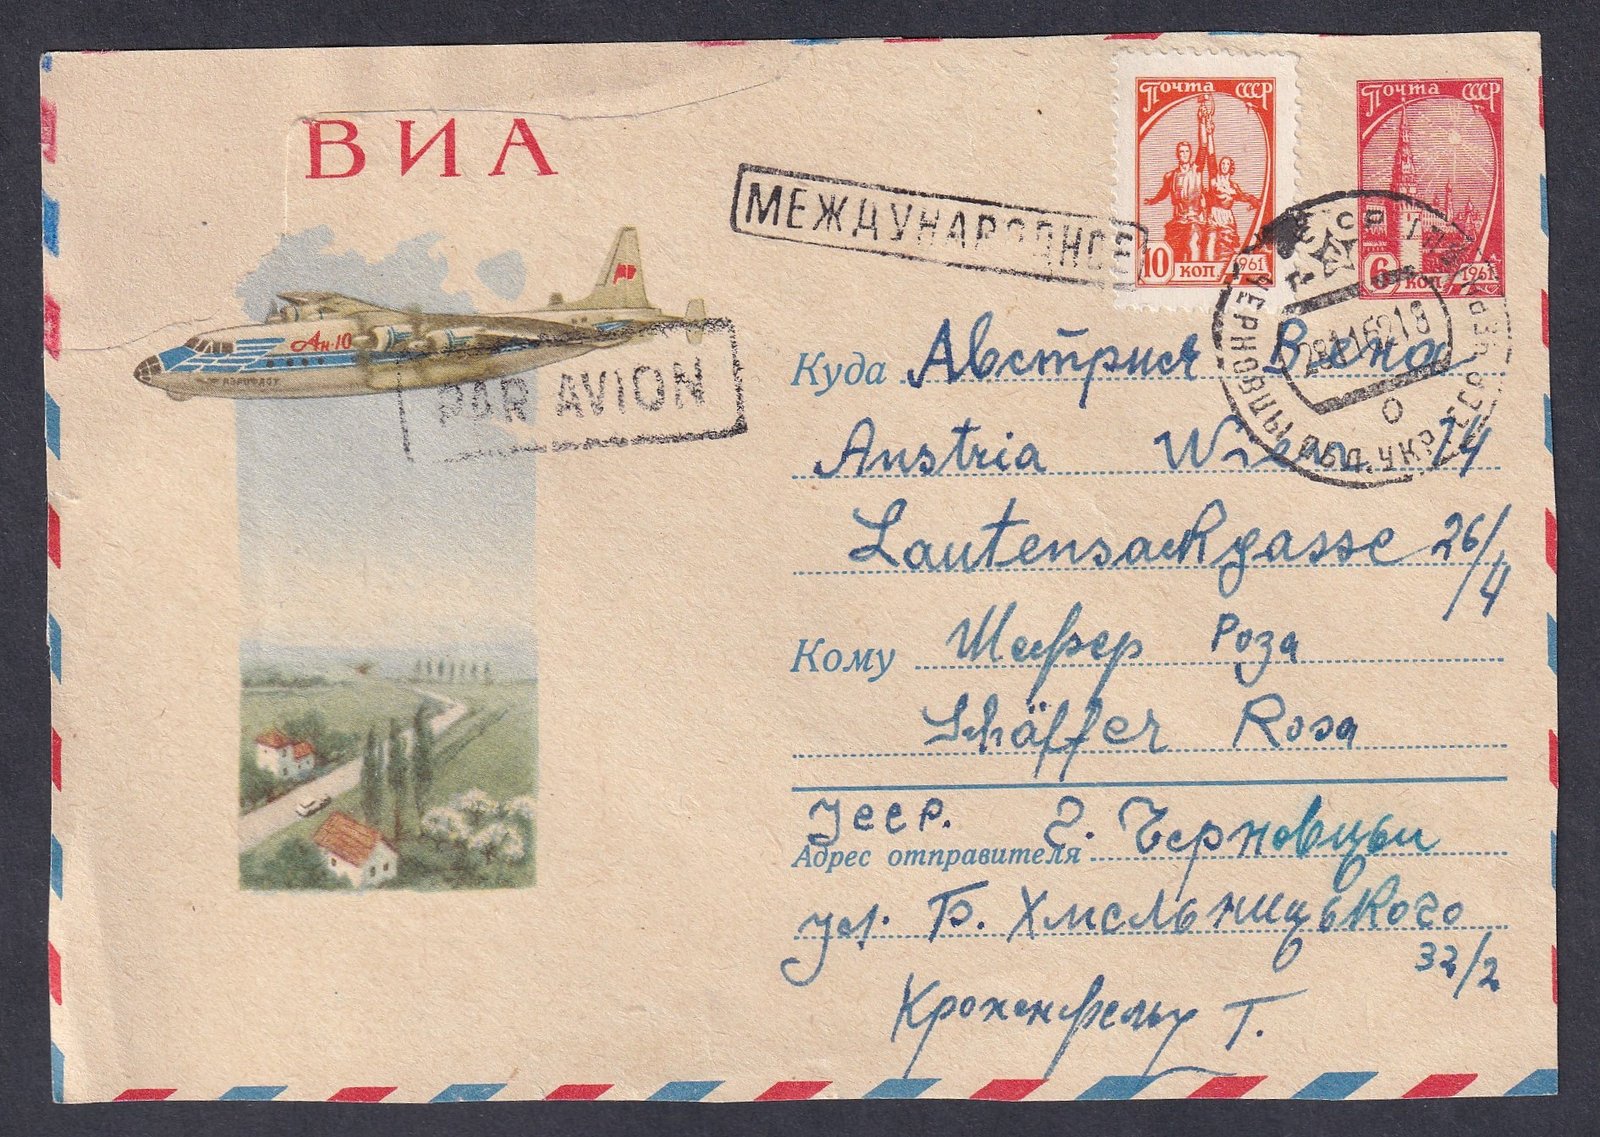 ВИА
МЕЖДУНАРОДНОЕ
Почта СССР
10 КОП 1961
Почта СССР
6 КОП 1961
Ан-10
АЭРОФЛОТ
PAR AVION
Куда Австрия Вена
Austria Wien 14
Lautensackgasse 26/4
Кому Шефер Роза
Schäffer Rosa
УССР. г. Черновцы
Адрес отправителя
ул. Б. Хмельницького
32/2
Кроненфельд Т.